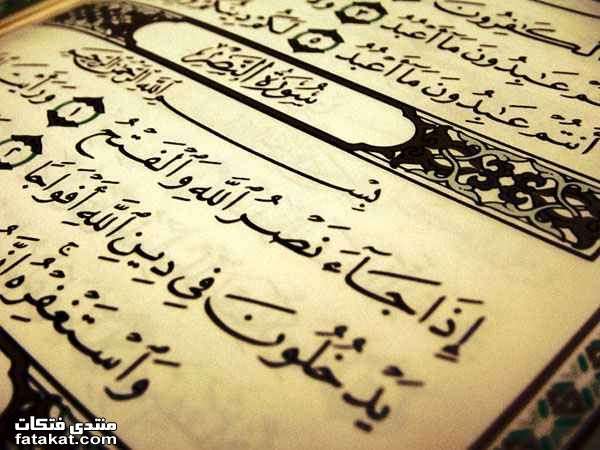 ٱلْكَٰفِرُونَ
عَٰبِدُونَ مَآ أَعْبُدُ ٣
أَنتُمْ عَٰبِدُونَ مَآ أَعْبُدُ ٥ لَكُمْ دِينُكُمْ
سُورَةُ النَّصْرِ
بِسْمِ ٱللَّهِ ٱلرَّحْمَٰنِ ٱلرَّحِيمِ
إِذَا جَآءَ نَصْرُ ٱللَّهِ وَٱلْفَتْحُ ١ وَرَأَيْتَ
يَدْخُلُونَ فِى دِينِ ٱللَّهِ أَفْوَاجًا ٢
وَٱسْتَغْفِرْهُ
منتدى فتكات
fatakat.com